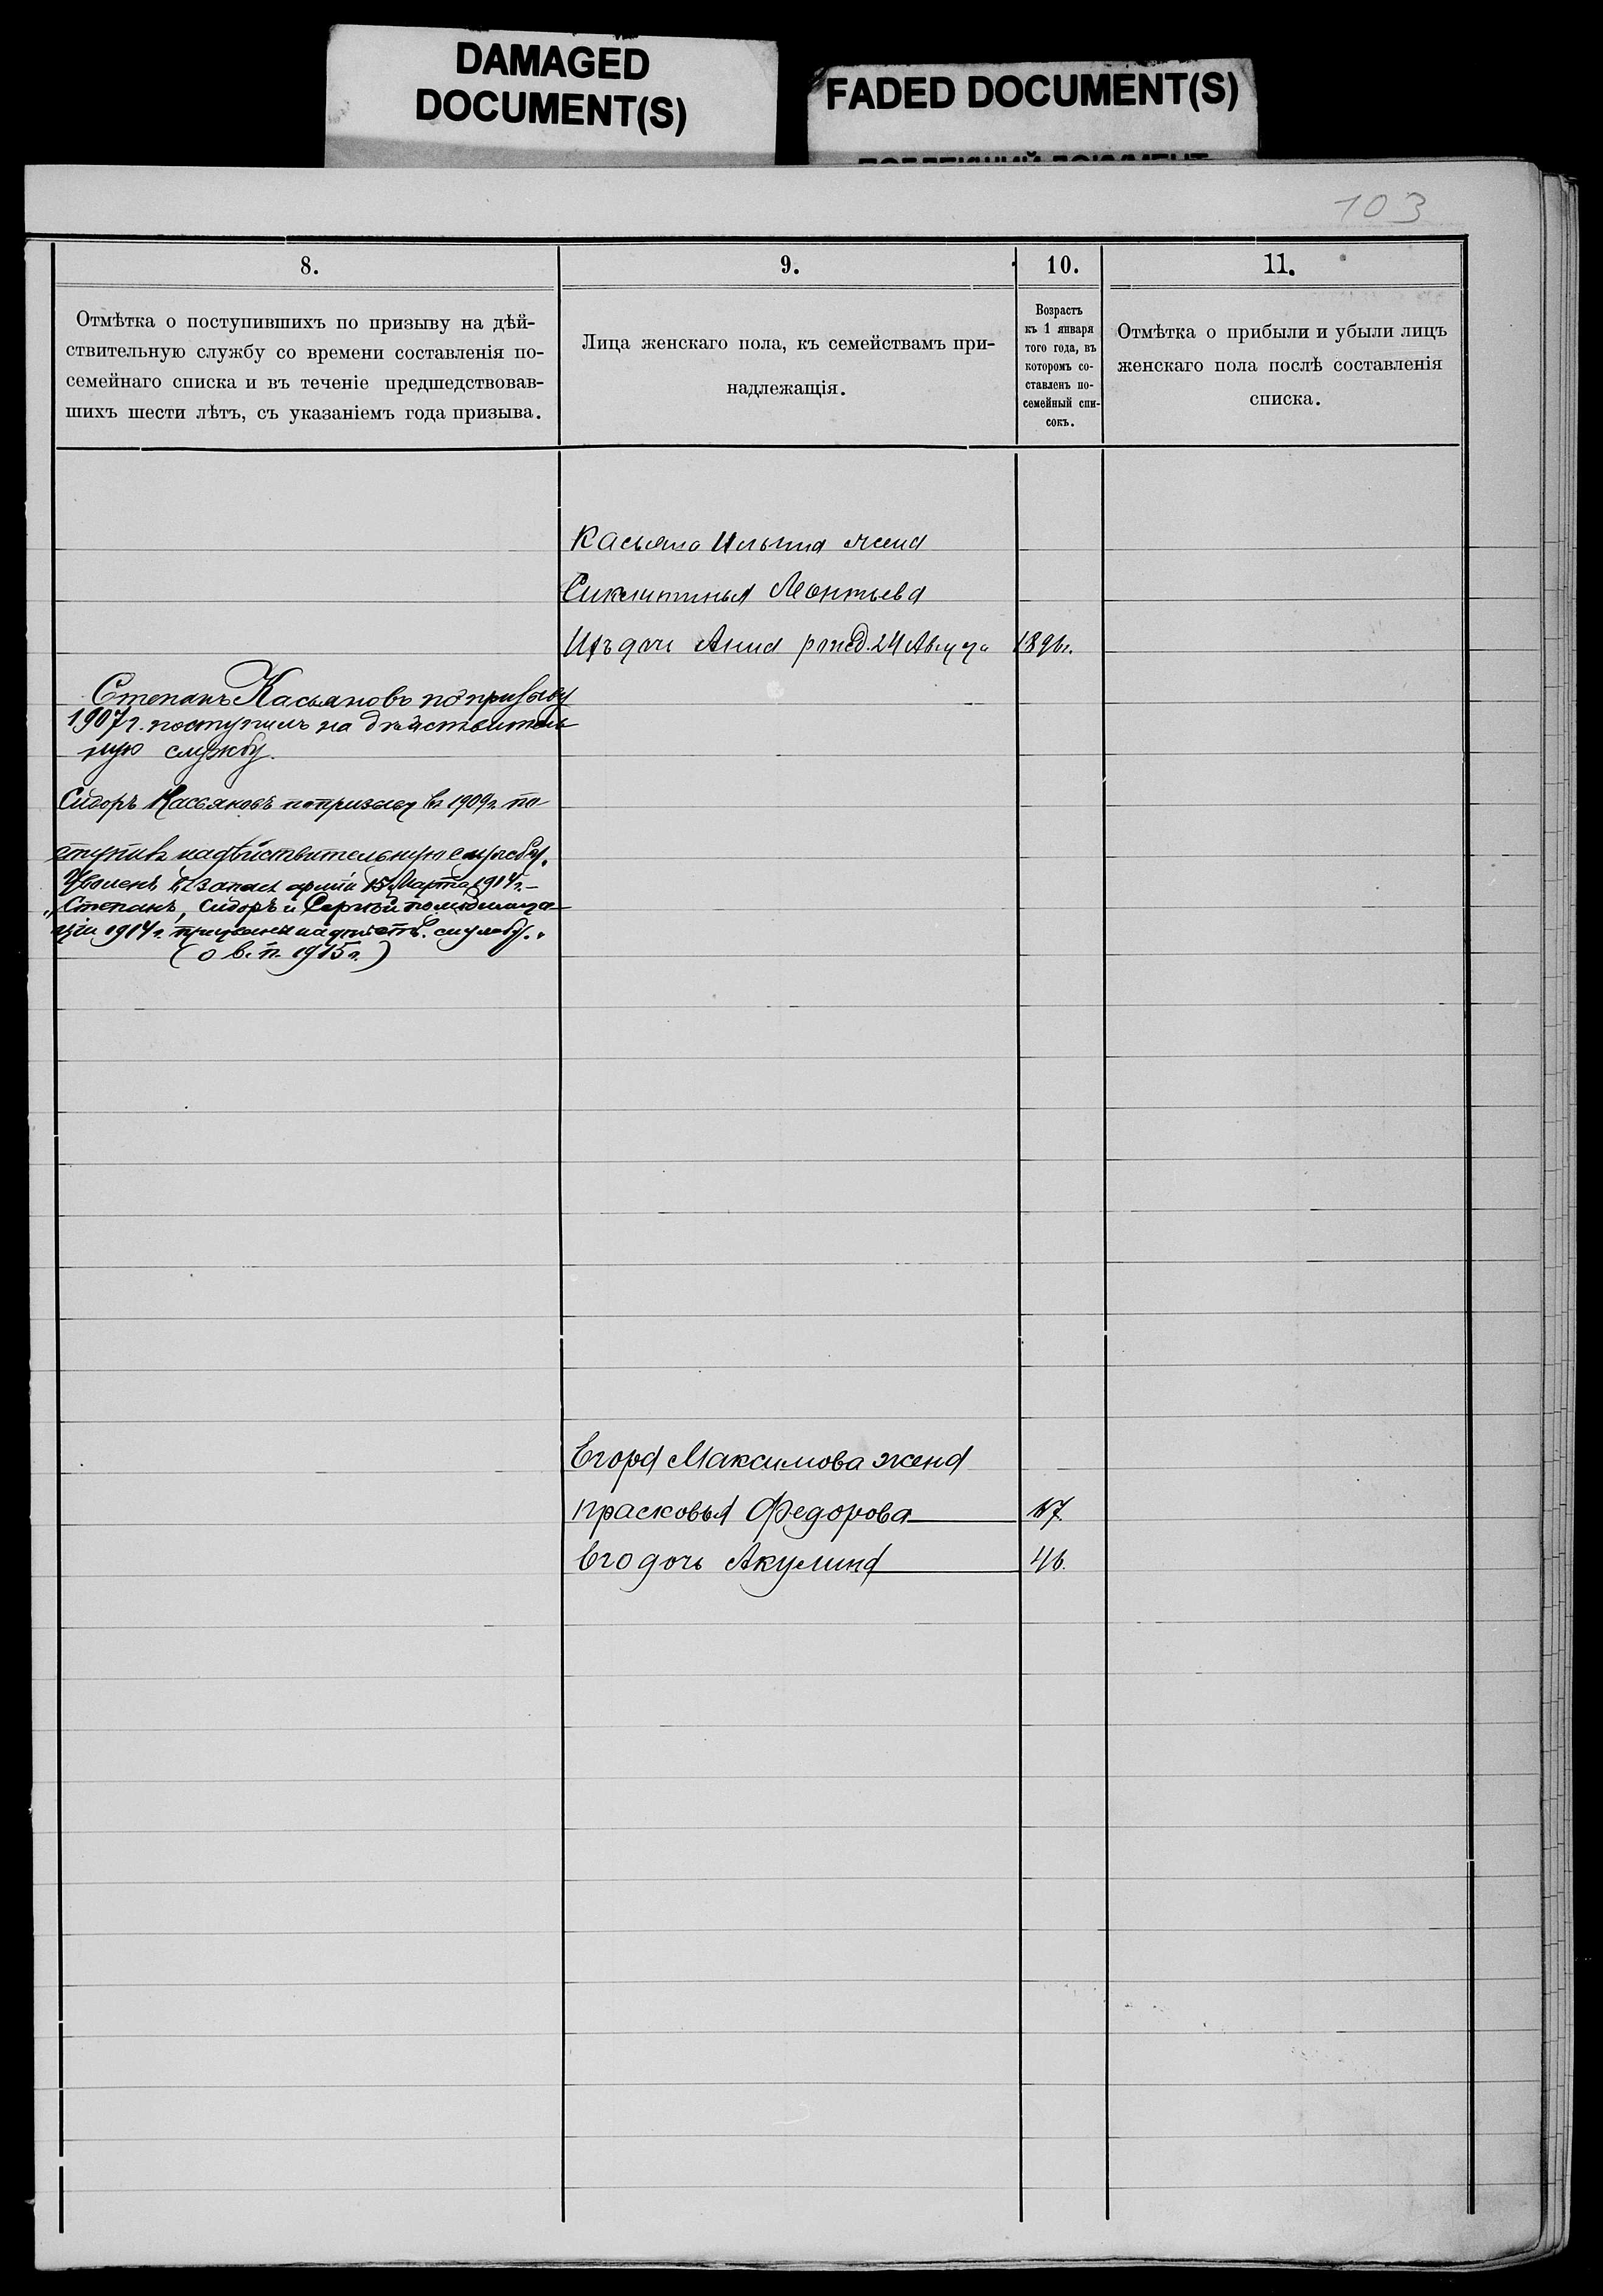 DAMAGED
DOCUMENT(S)
FADED DOCUMENT(S)
103
8.
9.
10.
11.
Отмѣтка о поступившихъ по призыву на дѣй-
ствительную службу со времени составленія по-
семейнаго списка и въ теченіе предшедствовав-
шихъ шести лѣтъ, съ указаніемъ года призыва.
Лица женскаго пола, къ семействамъ при-
надлежащія.
Возрастъ
къ 1 января
того года, въ
которомъ со-
ставленъ по-
семейный спи-
сокъ.
Отмѣтка о прибыли и убыли лицъ
женскаго пола послѣ составленія
списка.
Касьяна Ильина жена
Сиклитинья Леонтьева
Ихъ дочь Анна рожд. 24 Августа 1896г.
Степанъ Касьяновъ по призыву
1907 г. поступилъ на дѣйствитель
ную службу.
Сидоръ Касьяновъ по призыву въ 1909г. по
ступивъ на дѣйствительную службу.
Уволенъ въ запасъ арміи 15 Марта 1914г.
„Степанъ, Сидоръ и Сергѣй по мобилиза
ціи 1914 г. призваны на дѣйств. службу."
(о в. п. 1915 г.)
Егора Максимова жена
Прасковья Федорова 47
Его дочь Акулина